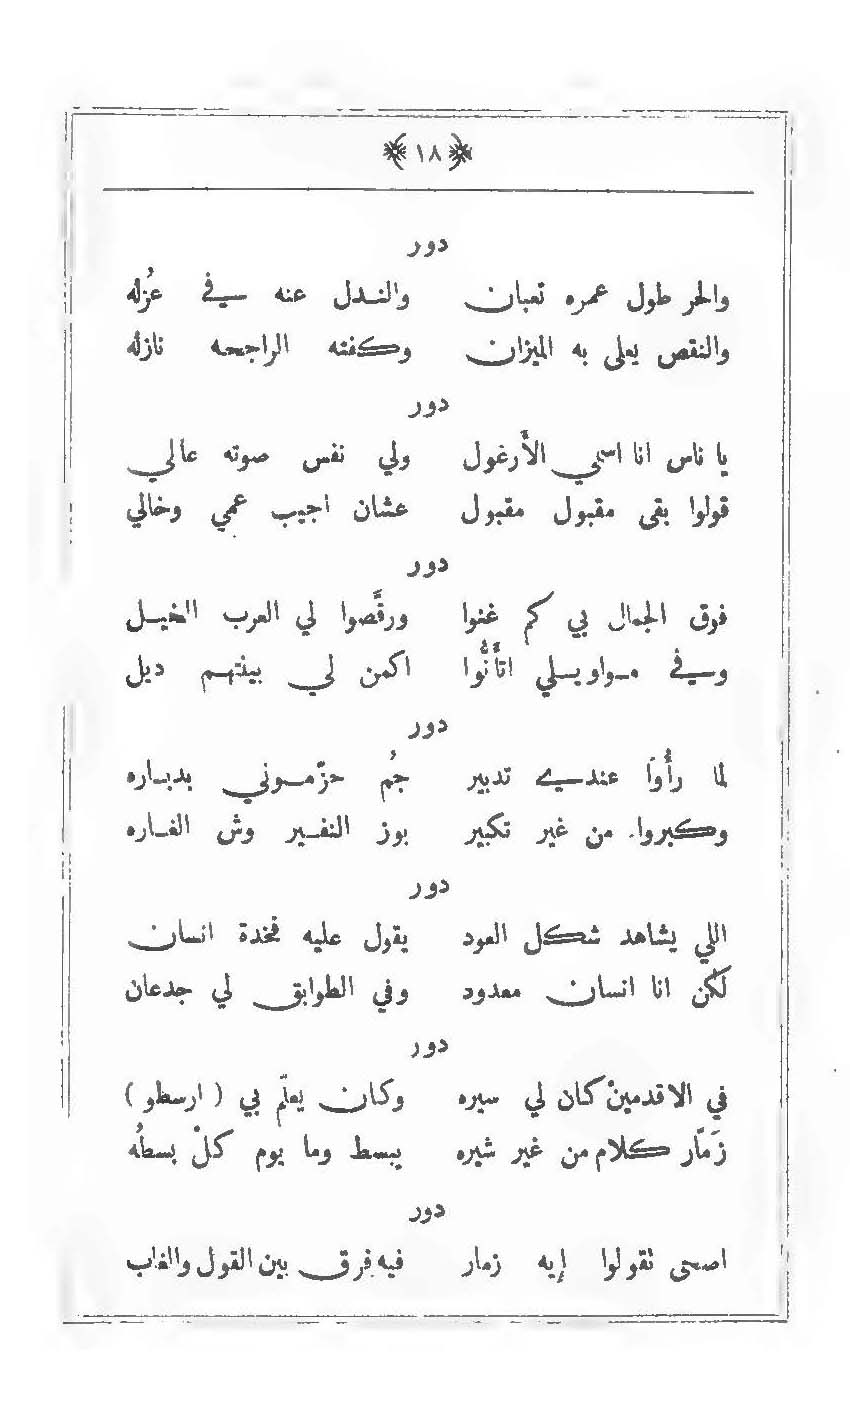 ﴿ ١٨ ﴾
دور
والحر طول عمره تعبان والندل عنه في عُزله
والنقص يعلى به الميزان وكفته الراجحه نازله
دور
يا ناس انا اسمي الأَرغول ولي نفس صوته عالي
قولوا بقى مقبول مقبول عشان اجيب عمي وخالي
دور
فوق الجمال بي كم غنوا ورقَّصوا لي العرب الخيل
وفي مواويلي اتأَنُّوا اكمن لي بينهم ديل
دور
لما رأَوا عندي تدبير جُم حزّموني بدباره
وكبروا من غير تكبير بوز النفير وش الغاره
دور
اللي يشاهد شكل العود يقول عليه فخدة انسان
لكن انا انسان معدود وفي الطوابق لي جدعان
دور
في الاقدمين كان لي سيره وكان يعلّم بي ( ارسطو )
زَمّار كلام من غير شيره يبسط وما يوم كلْ بسطُه
دور
اصحى تقولوا إيه زمار فيه فرق بين القول والغاب